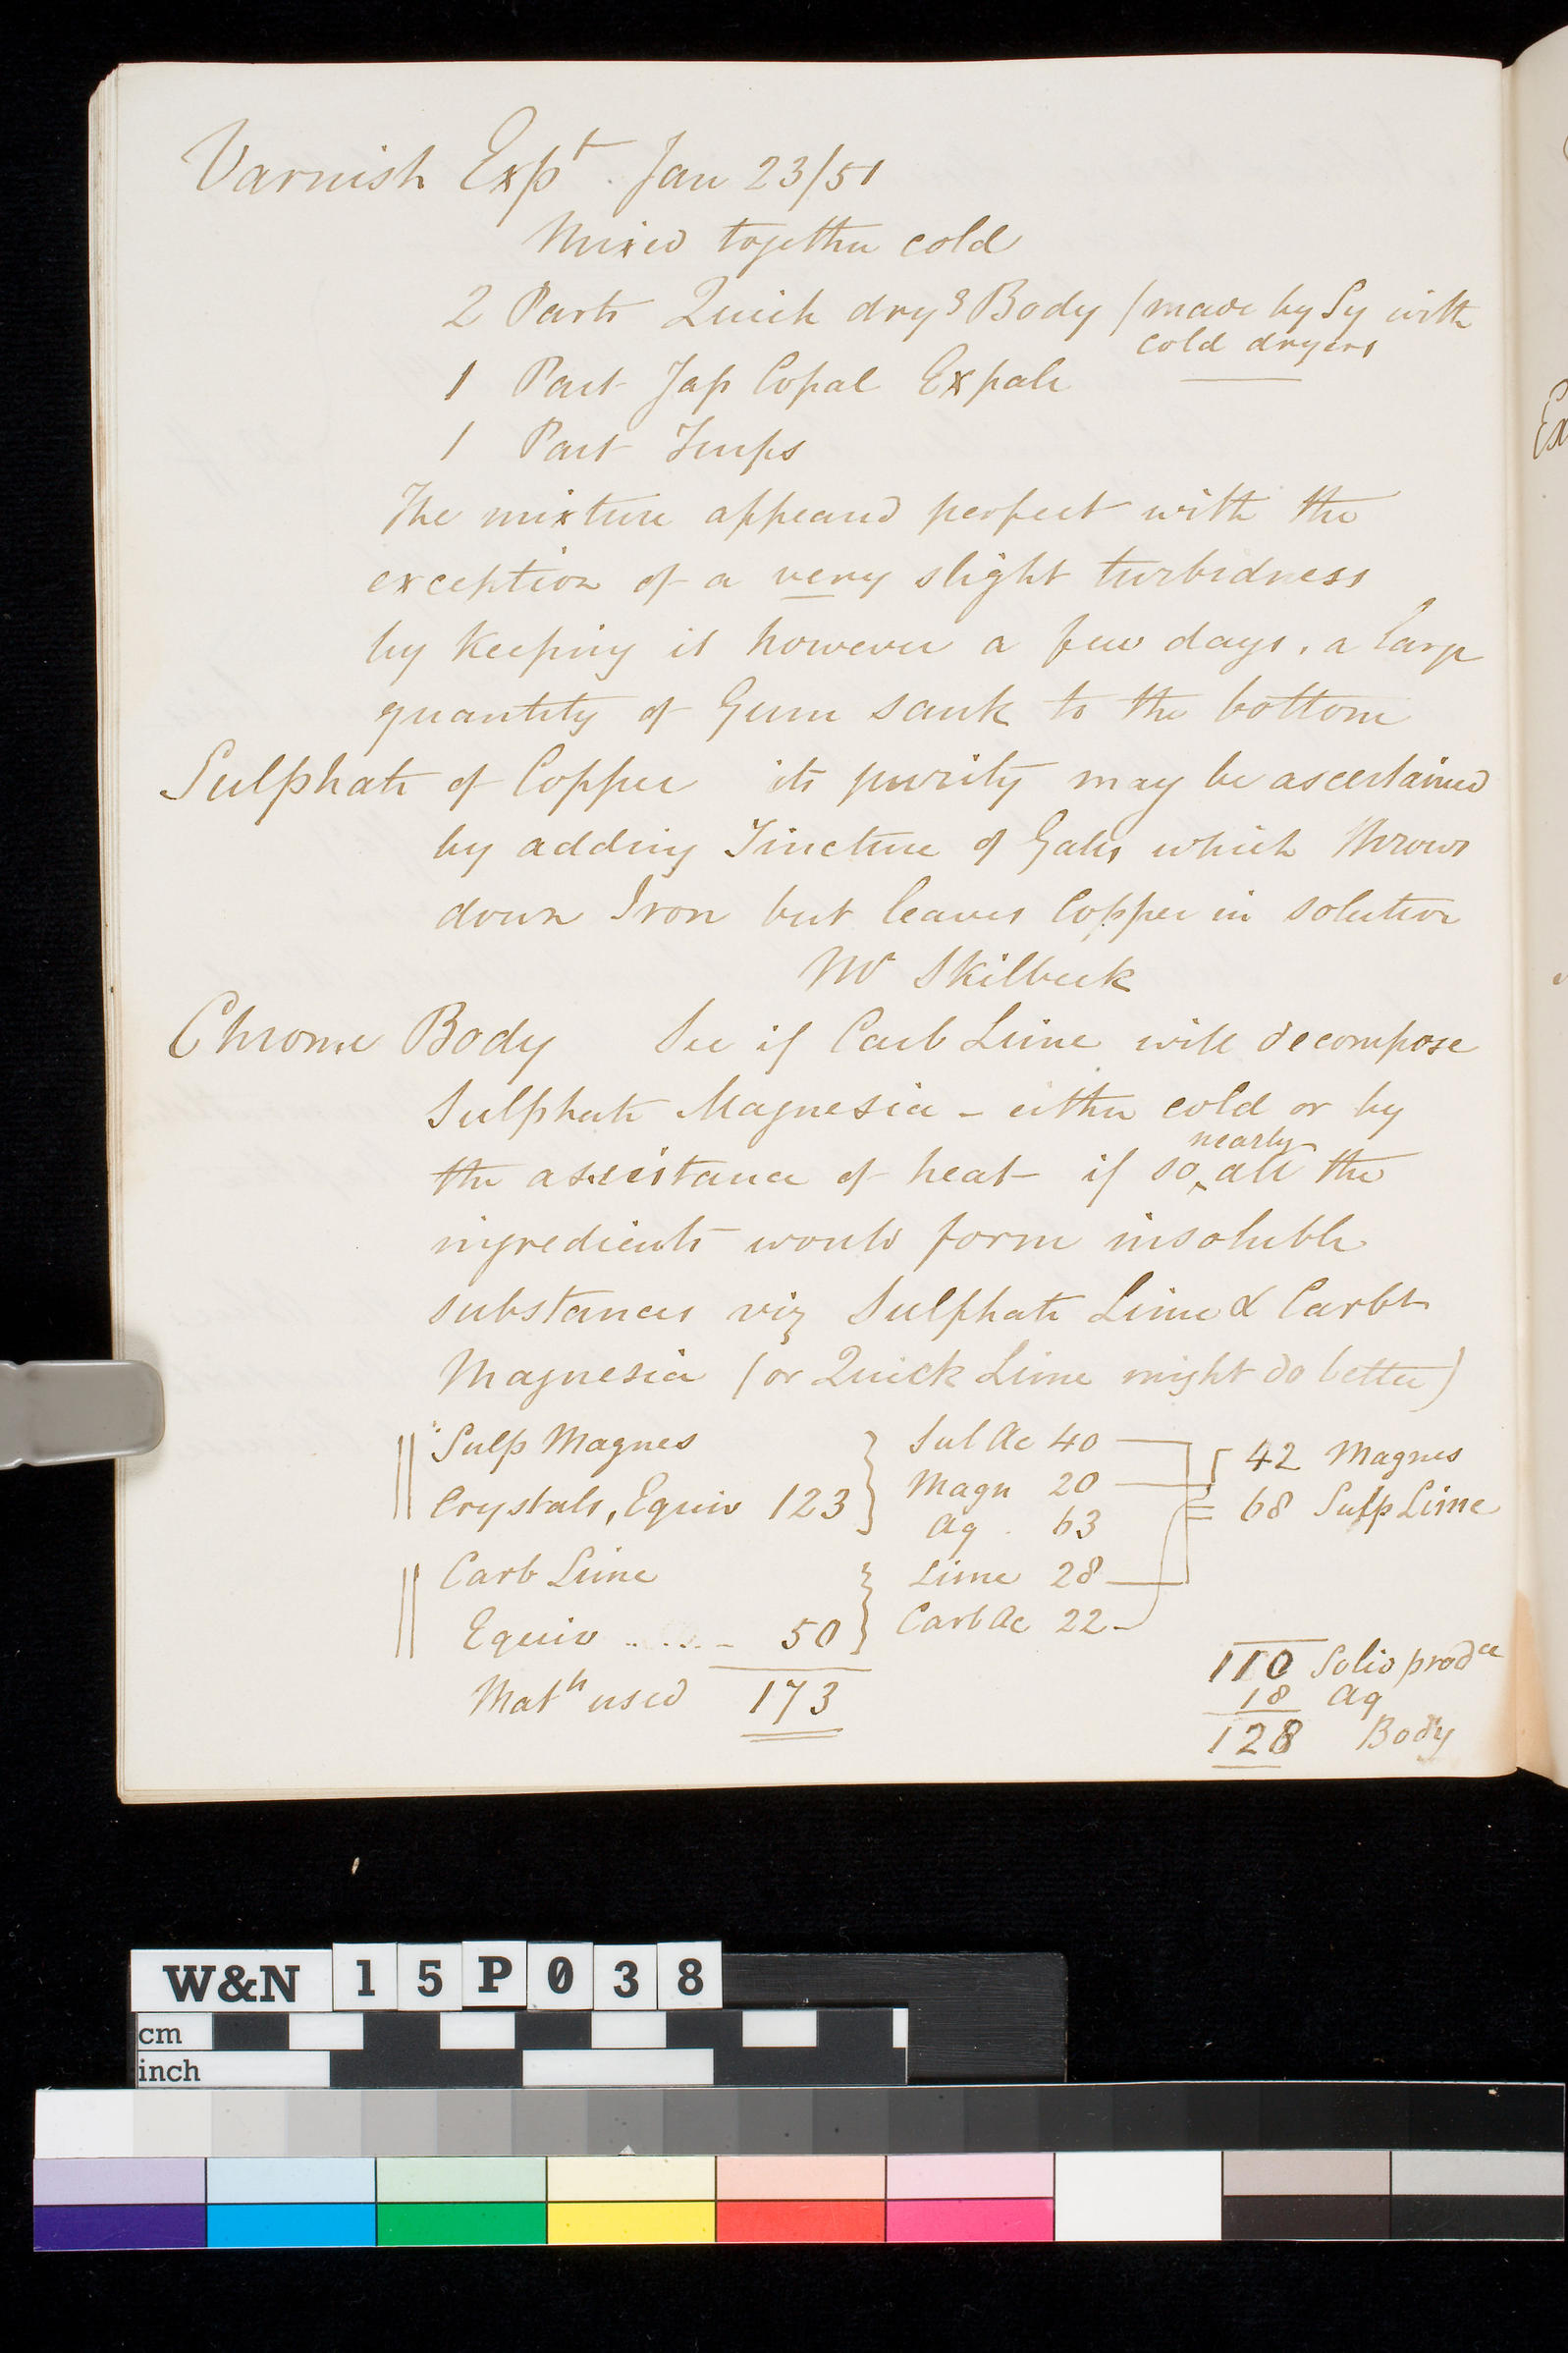 Varnish Expt. Jan 23/51
Mixed together cold
2 Parts Quick dryg Body (made by Sy with
cold dryers
1 Part Jap Copal Expale
1 Part Turps
The mixture appeared perfect with the
exception of a very slight turbidness
by Keeping it however a few days, a large
quantity of Gum sank to the bottom
Sulphate of Copper its purity may be ascertained
by adding Tincture of Galls which throws
down Iron but leaves Copper in solution
Mr Skilbeck
Chrome Body See if Carb Lime will decompose
Sulphate Magnesia - either cold or by
nearly
the assistance of heat if so, all the
ingredients would form insoluble
substances viz Sulphate Lime & Carbte
Magnesia (or Quick Lime might do better)
Sulp Magnes
Crystals, Equiv 123
Sul Ac 40
Magn 20
Aq . 63
42 Magnes
68 Sulp Lime
Carb Lime
Equiv ..... 50
Lime 28
Carb Ac 22
Matls used 173
110 Solid prodce
18 Aq
128 Body
W&N 15P038
cm
inch